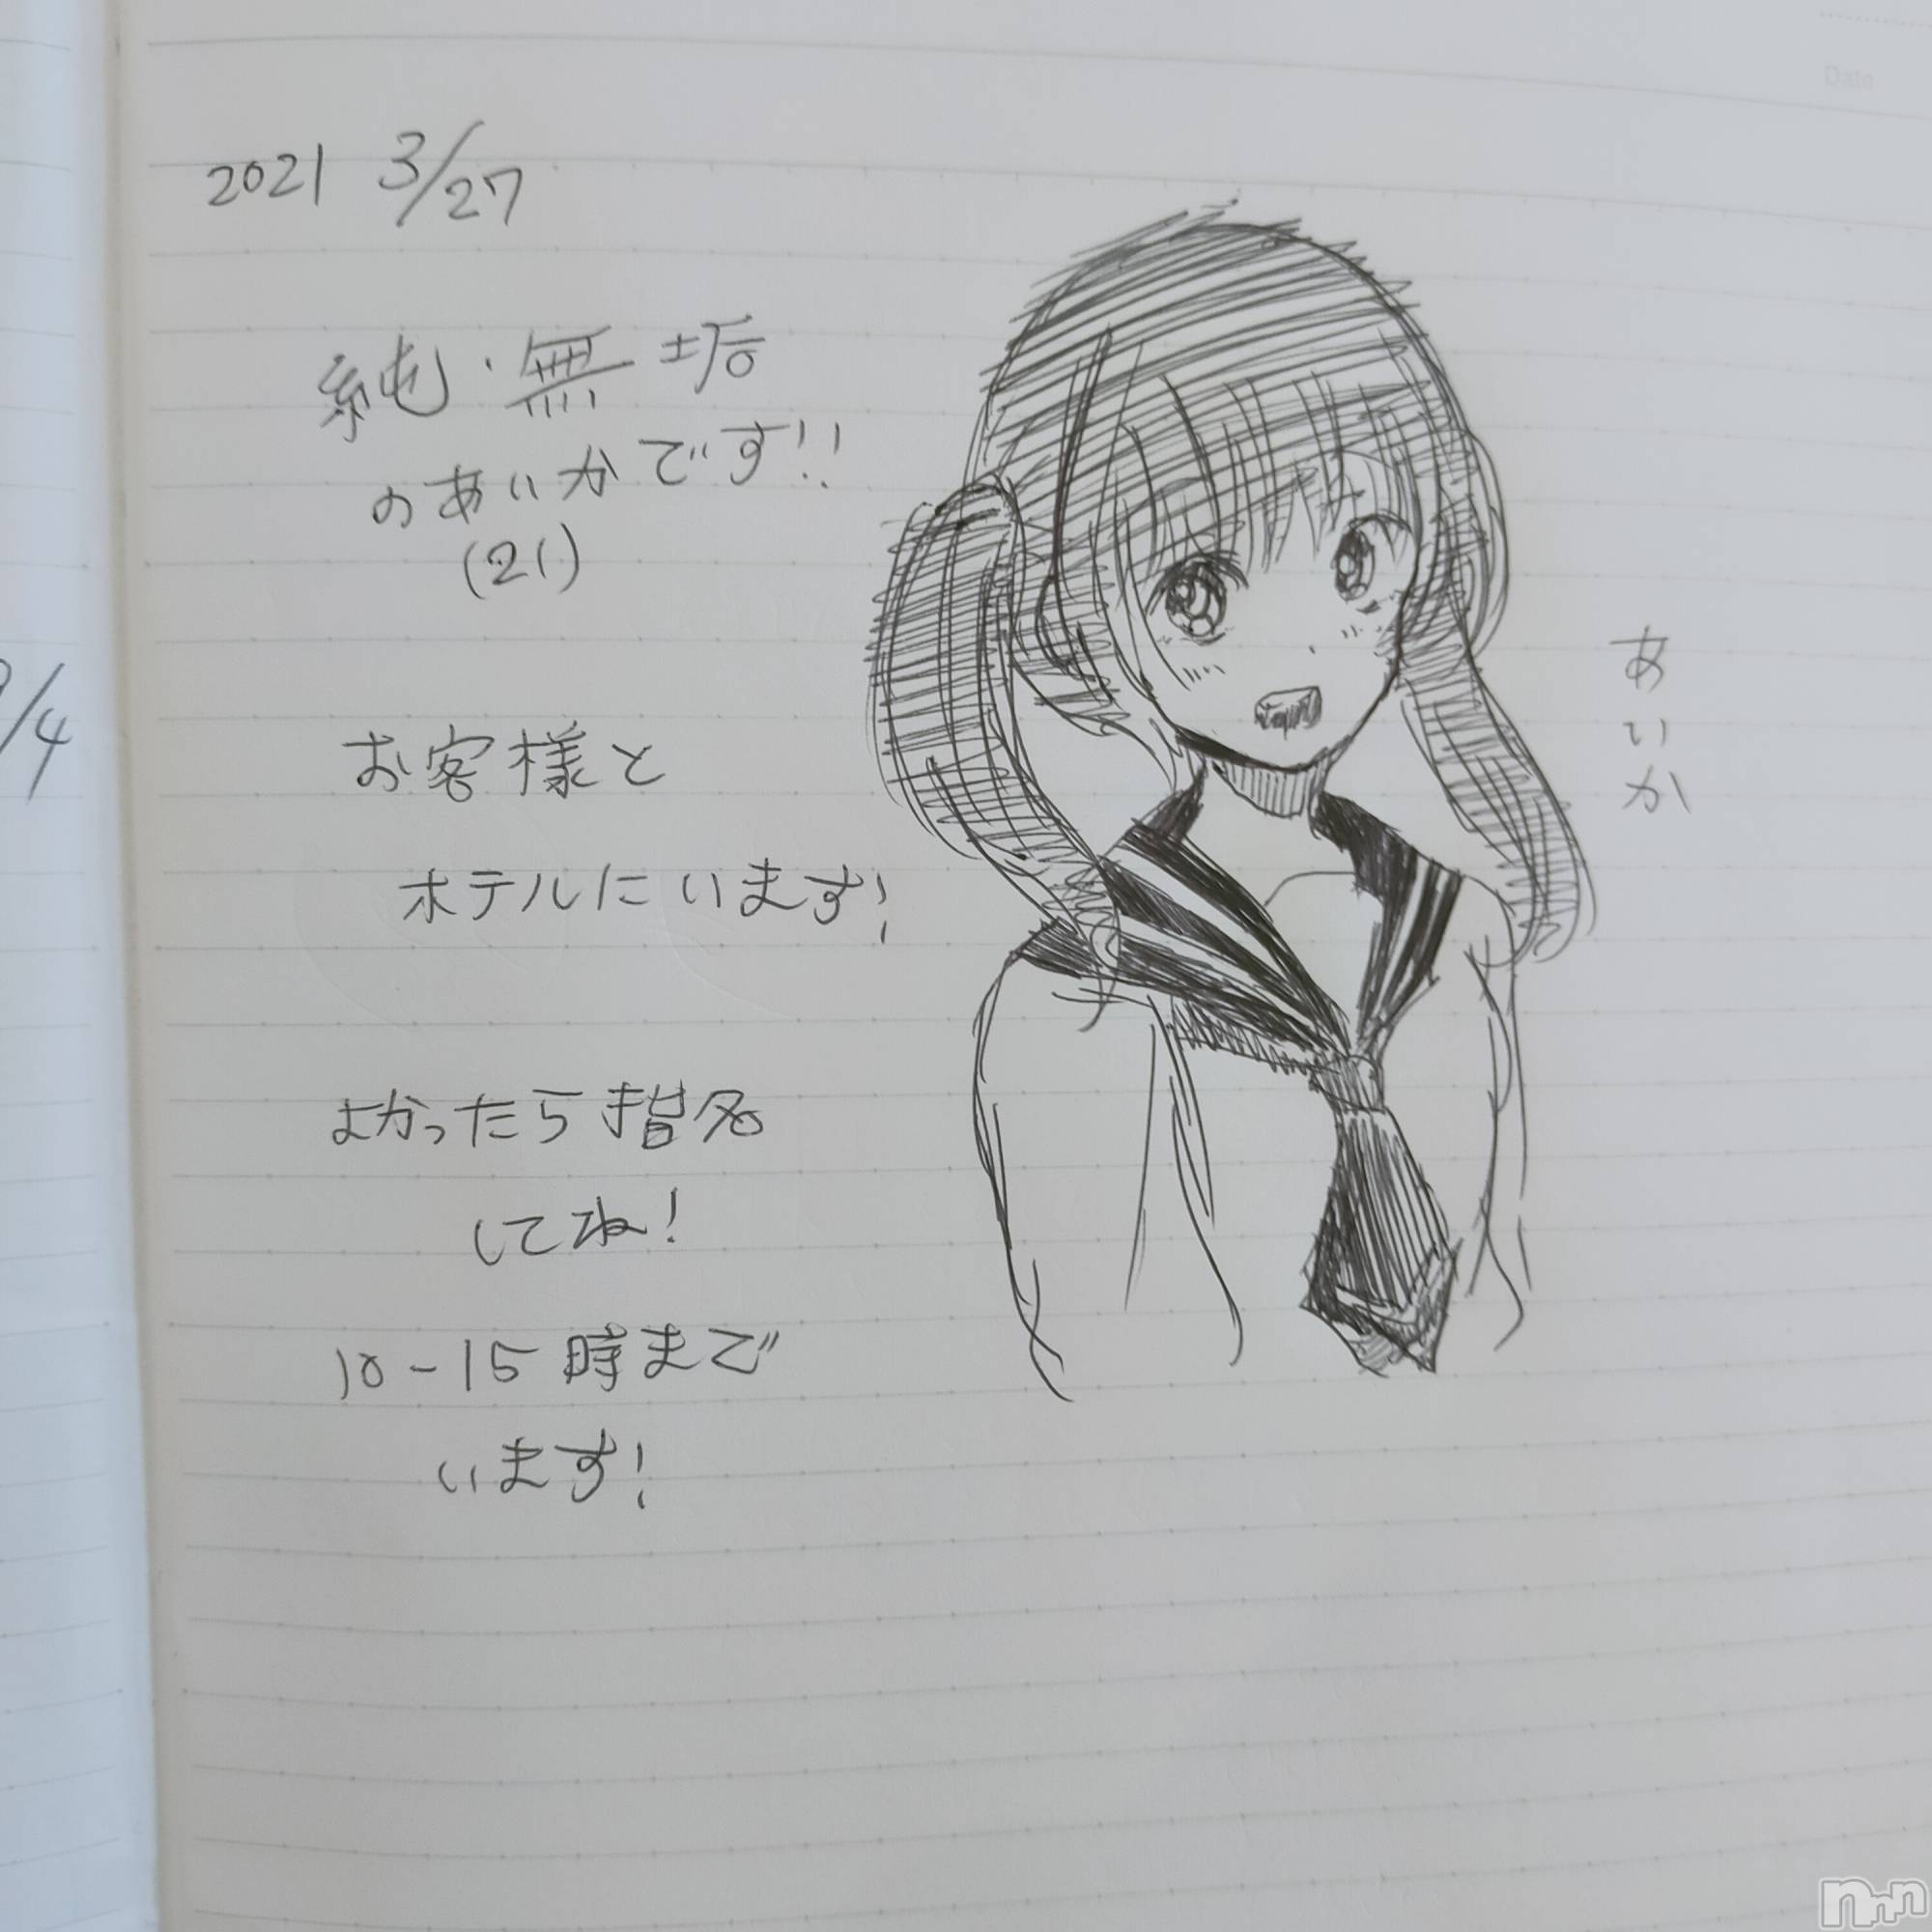 Date
2021 3/27
純・無垢
のあいかです!!
(21)
お客様と
ホテルにいます!
よかったら指名
してね!
10-15時まで
います!
あいか
/4
nmn